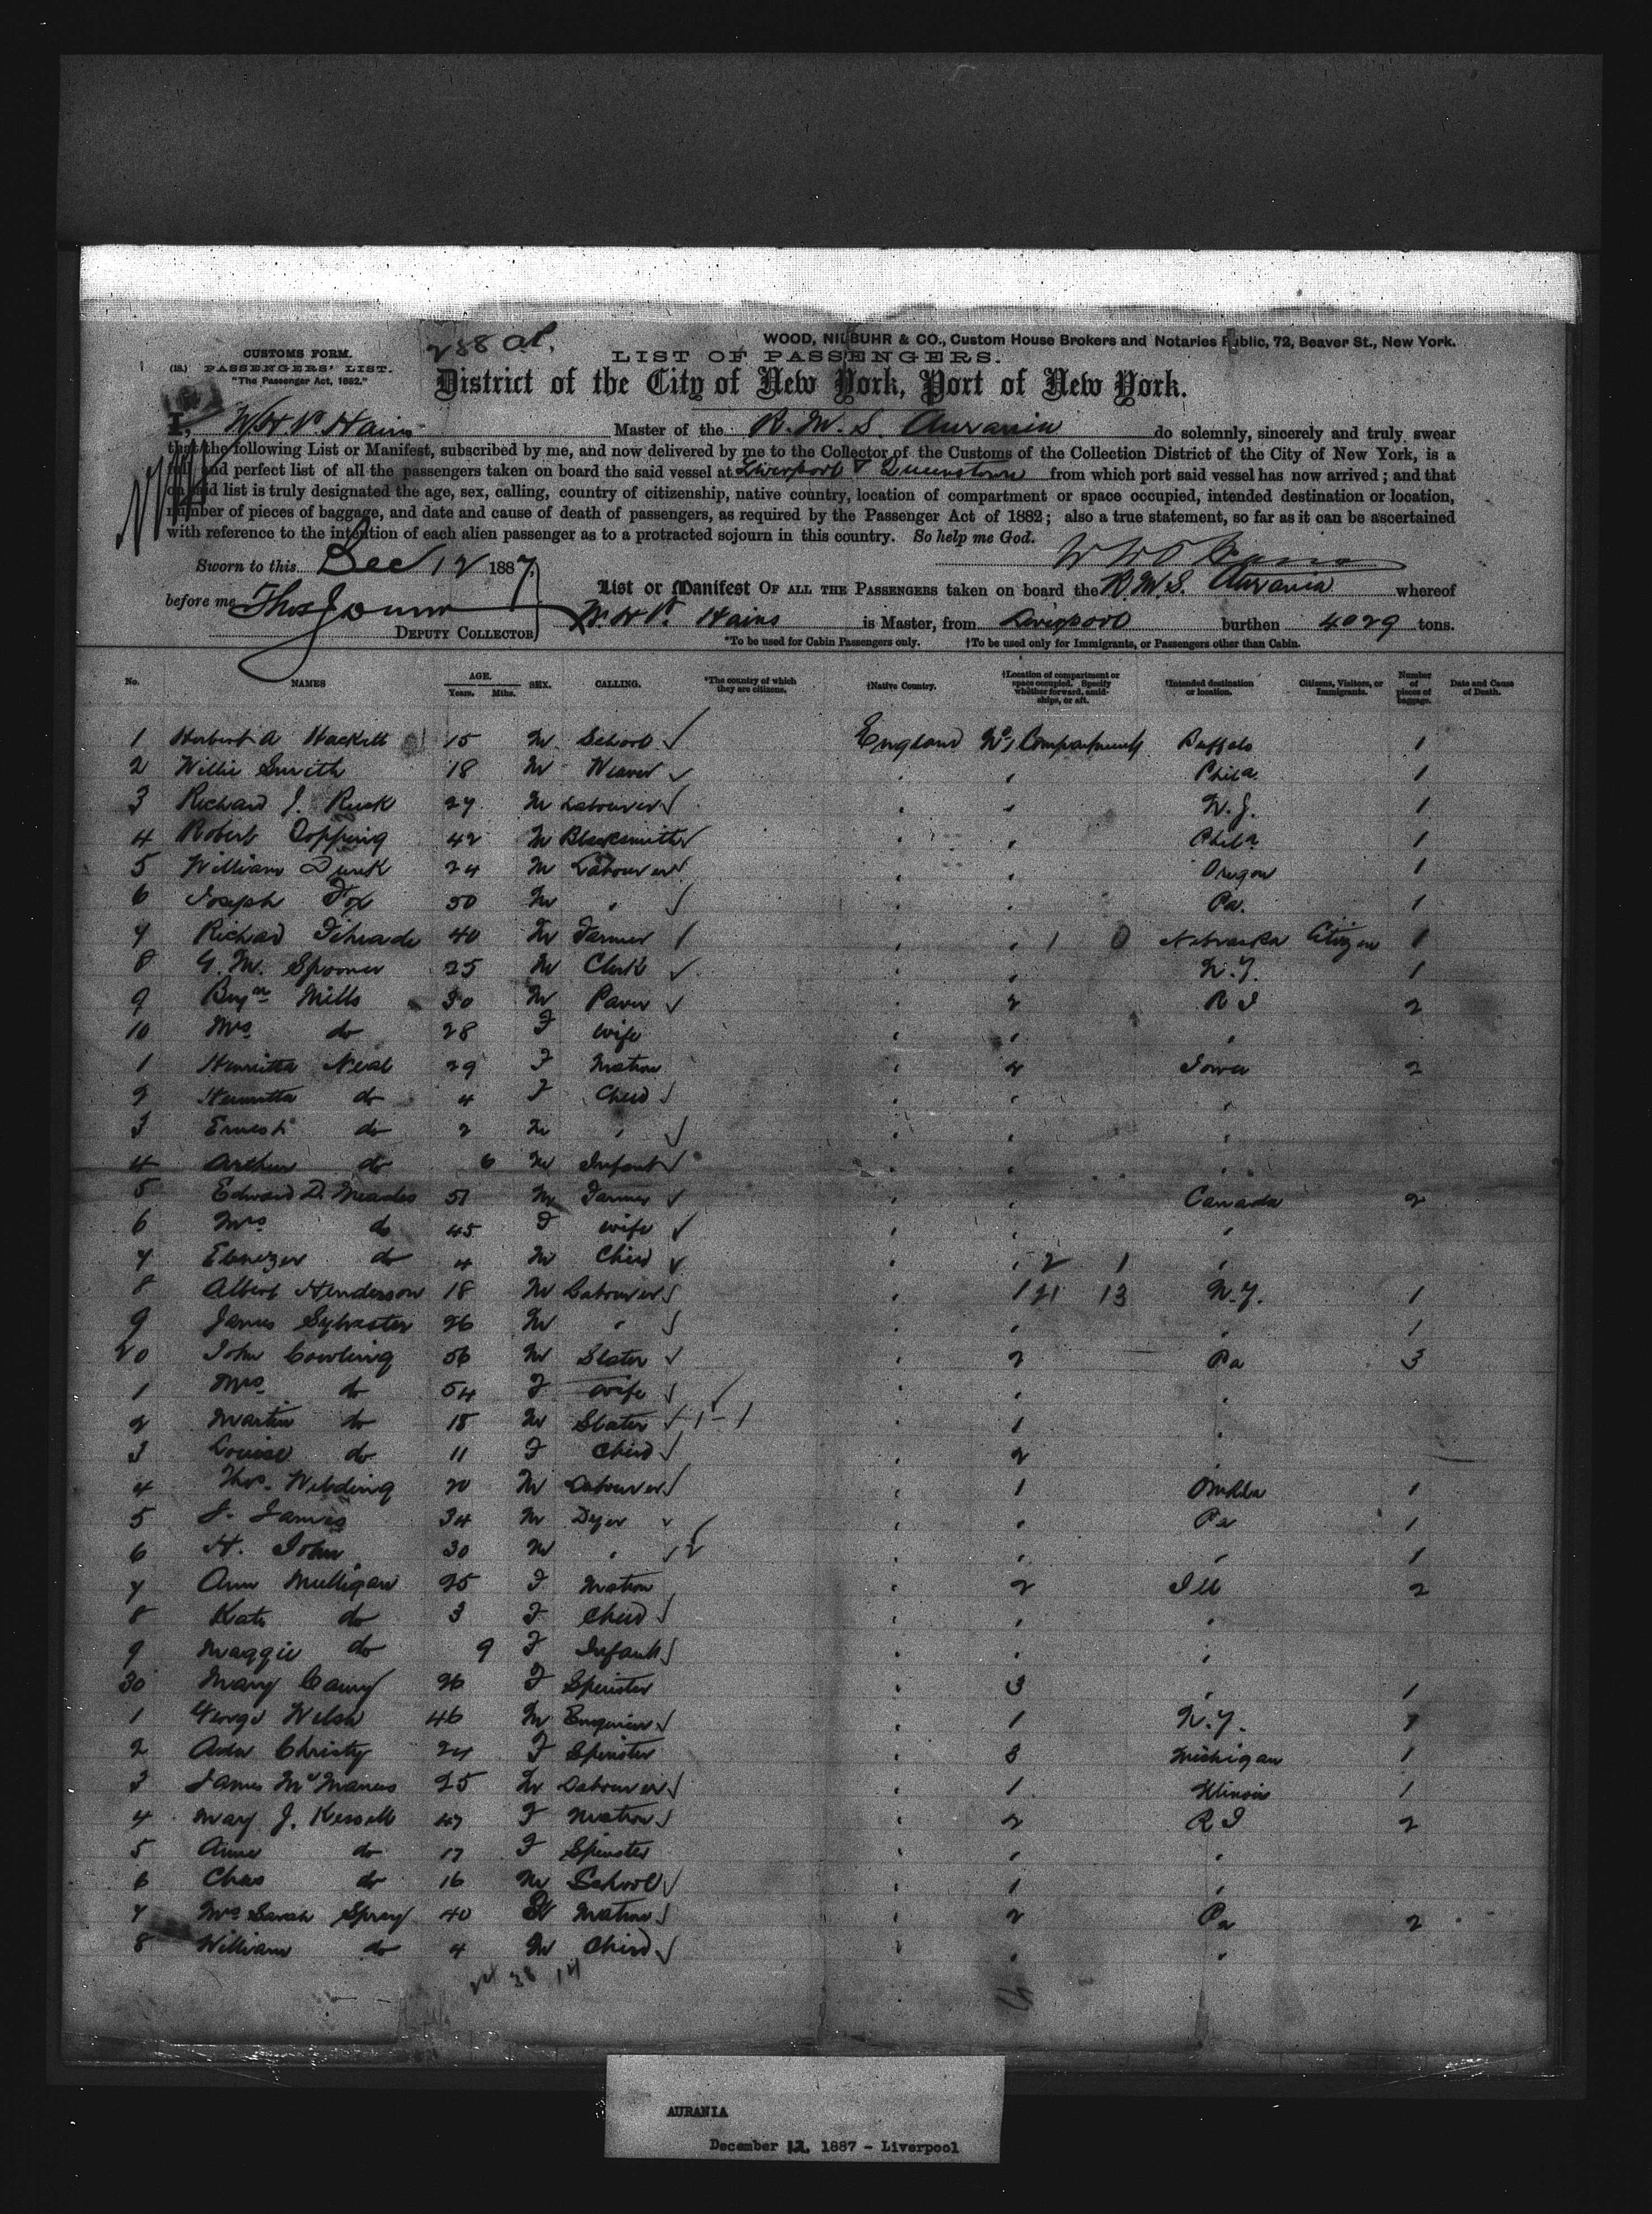 238 al.
WOOD, NIEBUHR & CO., Custom House Brokers and Notaries Public, 72, Beaver St., New York.
CUSTOMS FORM.
LIST OF PASSENGERS.
(18.) PASSENGERS' LIST.
"The Passenger Act, 1882."
District of the City of New York, Port of New York.
I, W.H.P. Hains Master of the R.M.S. Aurania do solemnly, sincerely and truly swear
that the following List or Manifest, subscribed by me, and now delivered by me to the Collector of the Customs of the Collection District of the City of New York, is a
full and perfect list of all the passengers taken on board the said vessel at Liverpool & Queenstown from which port said vessel has now arrived; and that
on said list is truly designated the age, sex, calling, country of citizenship, native country, location of compartment or space occupied, intended destination or location,
number of pieces of baggage, and date and cause of death of passengers, as required by the Passenger Act of 1882; also a true statement, so far as it can be ascertained
with reference to the intention of each alien passenger as to a protracted sojourn in this country. So help me God.
Sworn to this Dec 12 1887, W H P Hains
List or Manifest OF ALL THE PASSENGERS taken on board the R.M.S. Aurania whereof
before me Thos
W.H.P. Hains is Master, from Liverpool burthen 4029 tons.
DEPUTY COLLECTOR
*To be used for Cabin Passengers only. †To be used only for Immigrants, or Passengers other than Cabin.
No. NAMES AGE. Years. Mths. SEX. CALLING. *The country of which they are citizens. †Native Country. †Location of compartment or space occupied. Specify whether forward, amidships, or aft. †Intended destination or location. Citizens, Visitors, or Immigrants. Number of pieces of baggage. Date and Cause of Death.
1 Herbert A Hackett 15 M School England No 1 Compartment Buffalo 1
2 Willie Smith 18 M Weaver " " Phila 1
3 Richard J. Rusk 27 M Labourer " " N.J. 1
4 Robert Copping 42 M Blacksmith " " Phila 1
5 William 24 M Labourer " " Oregon 1
6 Joseph Fox 50 M " " " Pa. 1
7 Richard 40 M Farmer " " 1 0 Nebraska Citizen 1
8 G.M. Spooner 25 M Clerk " " N.Y. 1
9 Benjn Mills 30 M Paver " 2 R I 2
10 Mrs do 28 F Wife " " "
1 Henrietta Neal 29 F Matron " 2 Iowa 2
2 Henrietta do 4 F Child " " "
3 Ernest do 2 M " " " "
4 Arthur do 6 M Infant " " "
5 Edward D. Meades 51 M Farmer " " Canada 2
6 Mrs do 45 F Wife " " "
7 Ebenezer do 4 M Child " " 2 1 "
8 Albert Henderson 18 M Labourer " 1 21 13 N.Y. 1
9 James Sylvester 26 M " " " " 1
20 John Cowling 56 M Slater " 2 Pa 3
1 Mrs do 54 F Wife " " "
2 Martin do 18 M Slater 1-1 " 1 "
3 Louise do 11 F Child " 2 "
4 Thos. Wilding 20 M Labourer " 1 1
5 J. James 34 M Dyer " " Pa 1
6 H. John 30 M " 2 " " " 1
7 Ann Mulligan 25 F Matron " 2 Ill 2
8 Kate do 3 F Child " " "
9 Maggie do 9 F Infant " " "
30 Mary 26 F Spinster " 3 " 1
1 George Welsh 46 M Engineer " 1 N.Y. 1
2 Ada Christy 24 F Spinster " 3 Michigan 1
3 James McManus 25 M Labourer " 1 Illinois 1
4 Mary J. Kessell 47 F Matron " 2 R I 2
5 Annie do 17 F Spinster " " "
6 Chas do 16 M School " 1 "
7 Mrs Sarah Spray 40 F Matron " 2 Pa 2
8 William do 4 M Child " " "
24 38 14
AURANIA
December 12, 1887 - Liverpool